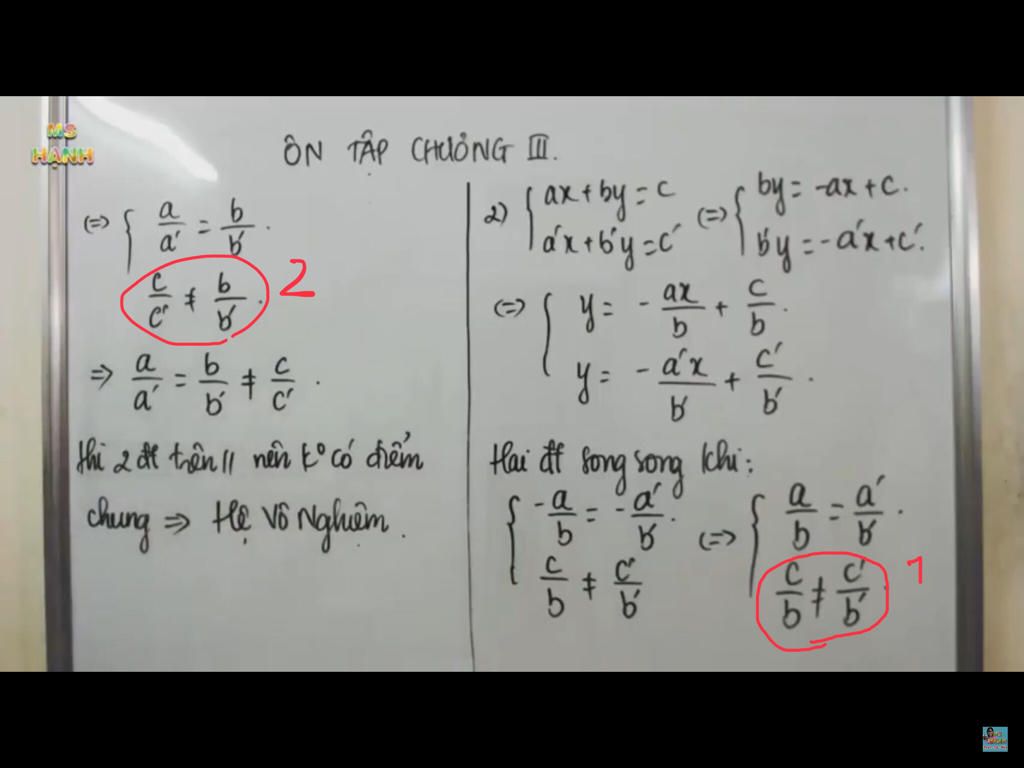 MS
HẠNH
ÔN TẬP CHƯƠNG III.
(=) { a/a' = b/b'.
c/c' ≠ b/b'. 2
=> a/a' = b/b' ≠ c/c'.
thì 2 đt trên // nên kº có điểm
chung => Hệ Vô Nghiệm.
2) { ax + by = c (=) { by = -ax + c.
a'x + b'y = c' b'y = -a'x + c'.
(=) { y = - ax/b + c/b.
y = - a'x/b' + c'/b'.
Hai đt song song khi:
{ -a/b = -a'/b'. (=) { a/b = a'/b'.
c/b ≠ c'/b' c/b ≠ c'/b'. 1